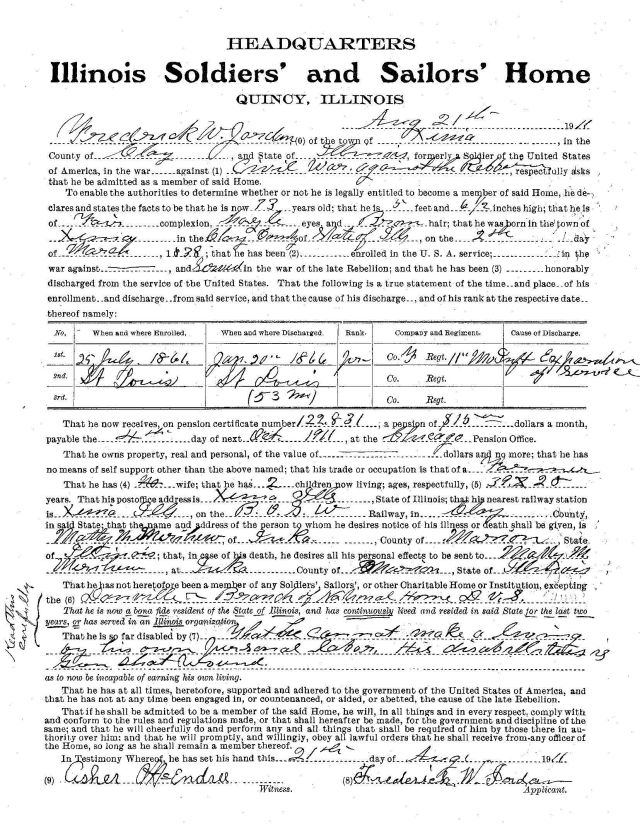 HEADQUARTERS
Illinois Soldiers' and Sailors' Home
QUINCY, ILLINOIS
Aug 21th 1911
Frederick W. Jordan (0) of the town of Xenia, in the
County of Clay, and State of Illinois, formerly a Soldier of the United States
of America, in the war against (1) Civil War against the, respectfully asks
that he be admitted as a member of said Home.
To enable the authorities to determine whether or not he is legally entitled to become a member of said Home, he de-
clares and states the facts to be that he is now 73 years old; that he is 5 feet and 6 1/2 inches high; that he is
of Fair complexion, eyes, and Brown hair; that he was born in the town of
Xenia in the Clay County of State of Ills, on the 2th day
of March, 1838; that he has been (2) enrolled in the U. S. A. service; in the
war against, and in the war of the late Rebellion; and that he has been (3) honorably
discharged from the service of the United States. That the following is a true statement of the time and place of his
enrollment and discharge from said service, and that the cause of his discharge, and of his rank at the respective date
thereof namely:
No. When and where Enrolled. When and where Discharged. Rank. Company and Regiment. Cause of Discharge.
1st. 25 July. 1861. Jan. 20th 1866 Co. Regt. 11th Mo Expiration
2nd. St Louis St Louis Co. Regt. of Service
3rd. (53 Mo) Co. Regt.
That he now receives, on pension certificate number 122831; a pension of $15 dollars a month,
payable the 4th day of next Oct 1911, at the Chicago Pension Office.
That he owns property, real and personal, of the value of dollars and no more; that he has
no means of self support other than the above named; that his trade or occupation is that of a Farmer
That he has (4) No wife; that he has 2 children now living; ages, respectively, (5) 39 & 20
years. That his postoffice address is Xenia Ills, State of Illinois; that his nearest railway station
is Xenia Ills, on the B. O. S. W Railway, in Clay County,
in said State; that the name and address of the person to whom he desires notice of his illness or death shall be given, is
Matty M. Merihew of Iuka, County of Marion, State
of Illinois; that, in case of his death, he desires all his personal effects to be sent to Matty M.
Merihew, at Iuka County of Marion, State of Illinois
That he has not heretofore been a member of any Soldiers', Sailors', or other Charitable Home or Institution, excepting
the (6) Danville Branch of National Home D. V. S.
That he is now a bona fide resident of the State of Illinois, and has continuously lived and resided in said State for the last two
years, or has served in an Illinois organization.
Read this carefully
That he is so far disabled by (7) That he cannot make a living
by his own personal labor. His disabilities is
Gun Shot Wound.
as to now be incapable of earning his own living.
That he has at all times, heretofore, supported and adhered to the government of the United States of America, and
that he has not at any time been engaged in, or countenanced, or aided, or abetted, the cause of the late Rebellion.
That if he shall be admitted to be a member of the said Home, he will, in all things and in every respect, comply with
and conform to the rules and regulations made, or that shall hereafter be made, for the government and discipline of the
same; and that he will cheerfully do and perform any and all things that shall be required of him by those there in au-
thority over him; and that he will promptly, and willingly, obey all lawful orders that he shall receive from any officer of
the Home, so long as he shall remain a member thereof.
In Testimony Whereof, he has set his hand this 21th day of Aug 1911.
(9) Asher (8) Frederick W. Jordan
Witness. Applicant.